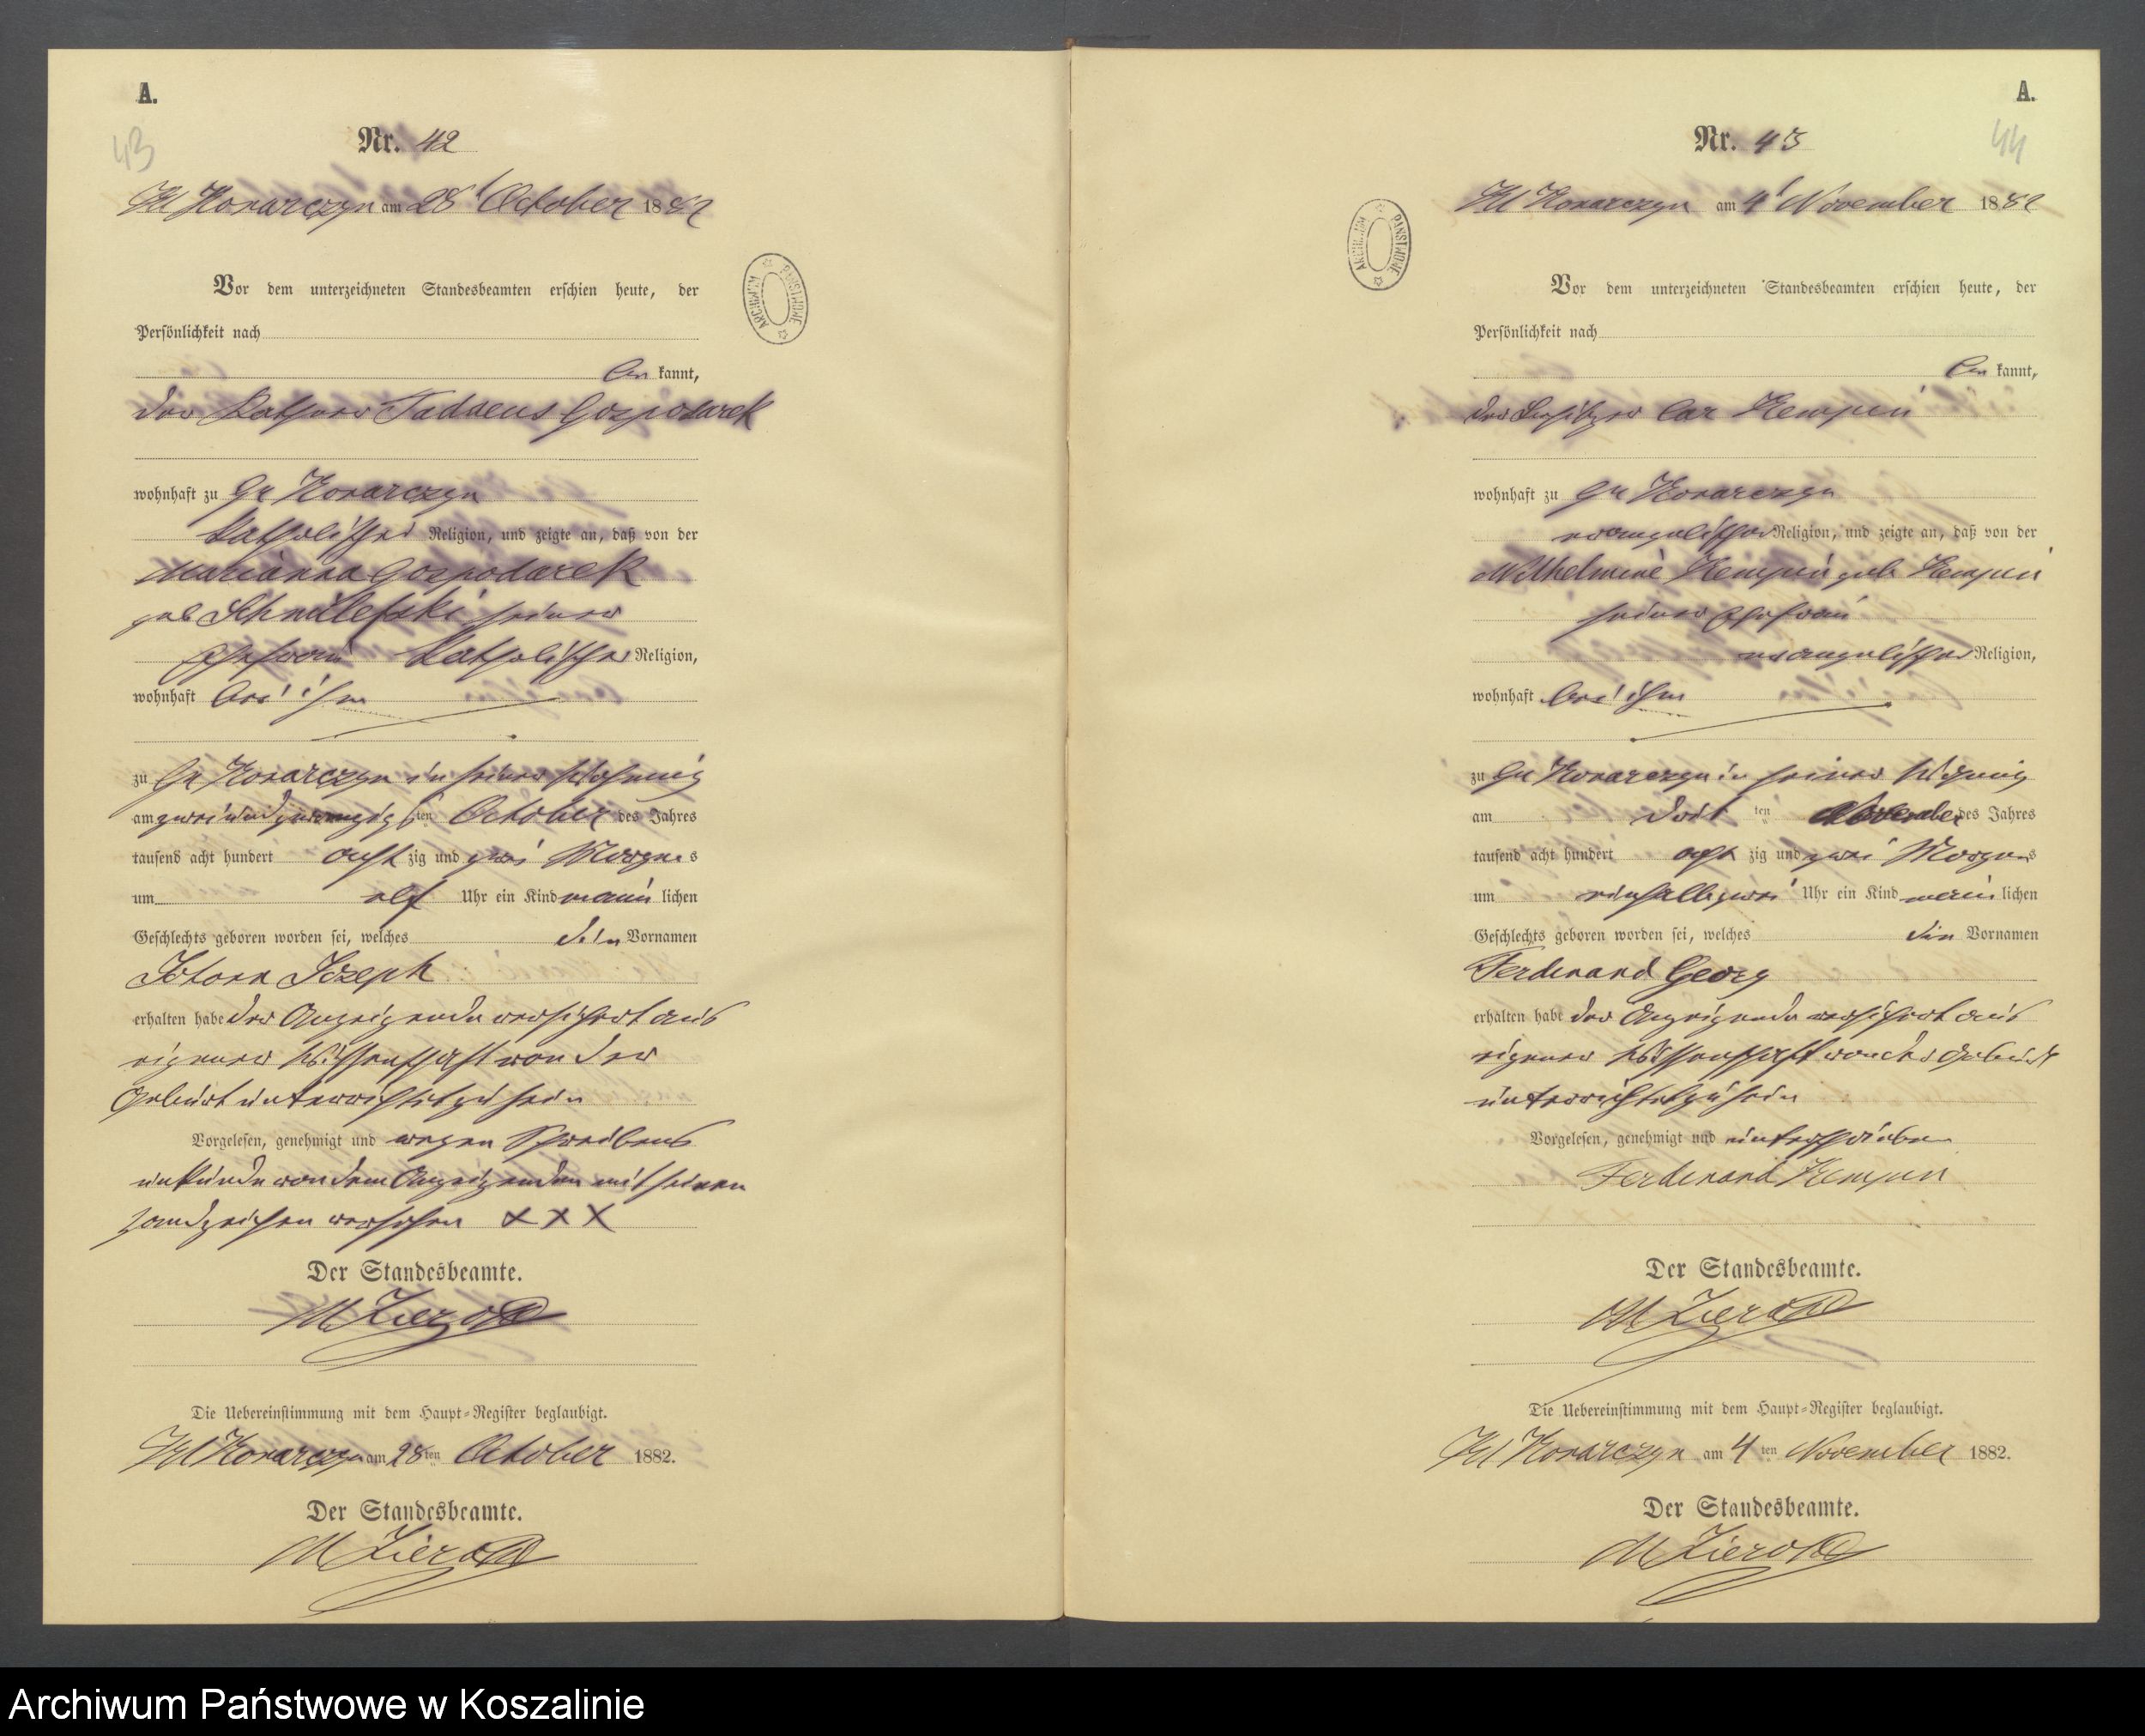 A.
43
Nr. 42
Kl Konarczyn am 28t October 1882
Vor dem unterzeichneten Standesbeamten erschien heute, der
Persönlichkeit nach
be kannt,
der Kathner Taddeus Gospodarek
wohnhaft zu Gr Konarczyn
katholischer Religion, und zeigte an, daß von der
Marianna Gospodarek
geb seiner
Ehefrau katholischer Religion,
wohnhaft bei ihm
zu Gr Konarczyn in seiner Wohnung
am zwei und zwanzigsten October des Jahres
tausend acht hundert acht zig und zwei Morgens
um elf Uhr ein Kind männlichen
Geschlechts geboren worden sei, welches den Vornamen
Johann Joseph
erhalten habe der Anzeigende versichert aus
eigener Wissenschaft von der
Geburt unterrichtet zu sein
Vorgelesen, genehmigt und wegen Schreibens
unkunde von dem Anzeigenden mit seinen
Handzeichen versehen X X X
Der Standesbeamte.
Die Uebereinstimmung mit dem Haupt-Register beglaubigt.
Kl Konarczyn am 28ten October 1882.
Der Standesbeamte.
A.
44
Nr. 43
Kl Konarczyn am 4t November 1882
Vor dem unterzeichneten Standesbeamten erschien heute, der
Persönlichkeit nach
be kannt,
der Besitzer Kempen
wohnhaft zu Gr Konarczyn
evangelischer Religion, und zeigte an, daß von der
Wilhelmine Kempen geb Kempen
seiner Ehefrau
evangelischer Religion,
wohnhaft bei ihm
zu Gr Konarczyn in seiner Wohnung
am drit ten November des Jahres
tausend acht hundert acht zig und zwei Morgens
um einhalbzwei Uhr ein Kind männlichen
Geschlechts geboren worden sei, welches den Vornamen
Ferdinand Georg
erhalten habe der Anzeigende versichert aus
eigener Wissenschaft von der Geburt
unterrichtet zu sein
Vorgelesen, genehmigt und unterschrieben
Ferdinand Kempen
Der Standesbeamte.
Die Uebereinstimmung mit dem Haupt-Register beglaubigt.
Kl Konarczyn am 4ten November 1882.
Der Standesbeamte.
ARCHIWUM PAŃSTWOWE
ARCHIWUM PAŃSTWOWE
Archiwum Państwowe w Koszalinie